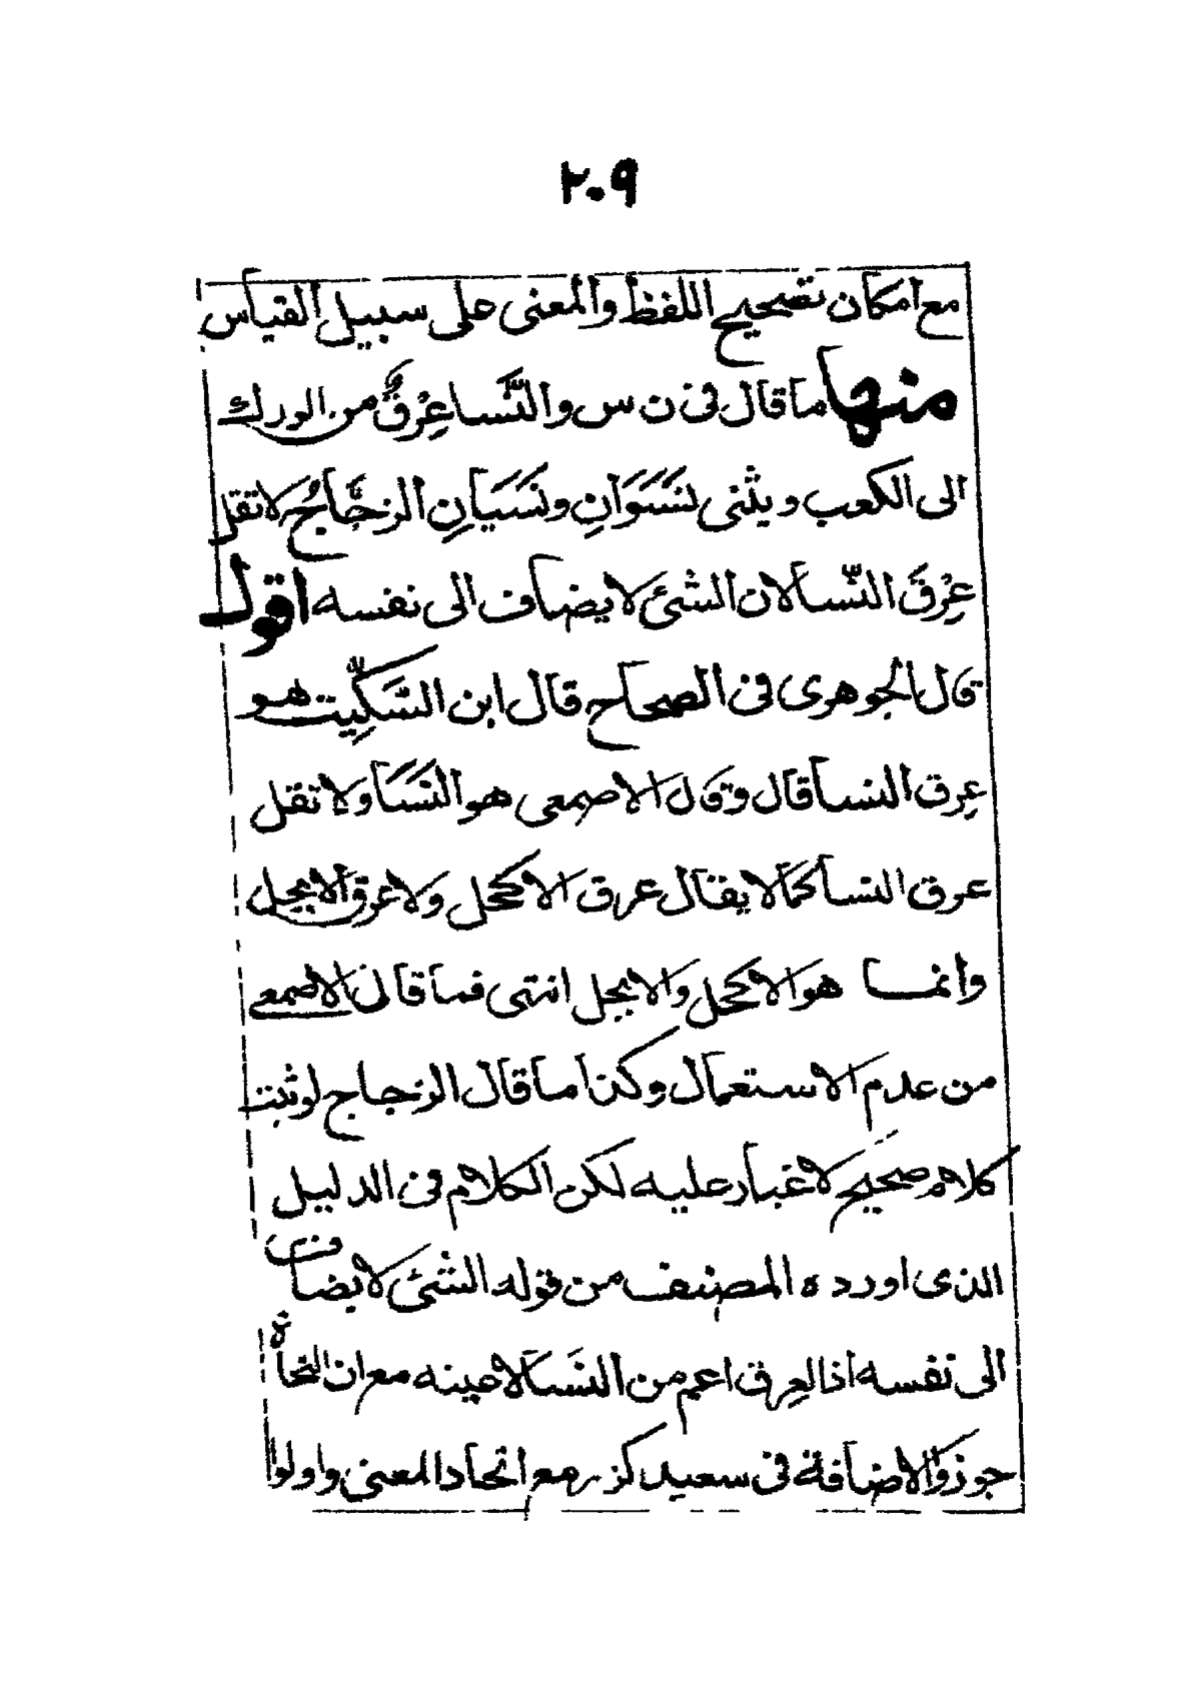 ٢٠٩
مع امكان تصحيح اللفظ والمعنى على سبيل القياس
منها ما قال فى ن س والنَّسا عِرْقٌ من الورك
الى الكعب ويثنى نَسَوَانِ ونَسَيَانِ الزجَّاجُ لا تقل
عِرْقَ النَّسا لان الشئ لا يضاف الى نفسه اقول
قال الجوهرى فى الصحاح قال ابن السَّكِّيت هو
عِرق النسا قال وقال الاصمعى هو النَسَا ولا تقل
عرق النسا كما لا يقال عرق الاكحل ولا عرق الابجل
وانما هو الاكحل والابجل انتهى فما قال الاصمعى
من عدم الاستعمال وكذا ما قال الزجاج لو ثبت
كلام صحيح لا غبار عليه لكن الكلام فى الدليل
الذى اورده المصنف من قوله الشئ لا يضاف
الى نفسه اذ العِرق اعم من النَسَا لا عينه مع ان النحاة
جوزوا الاضافة فى سعيد كرز مع اتحاد المعنى واولوا